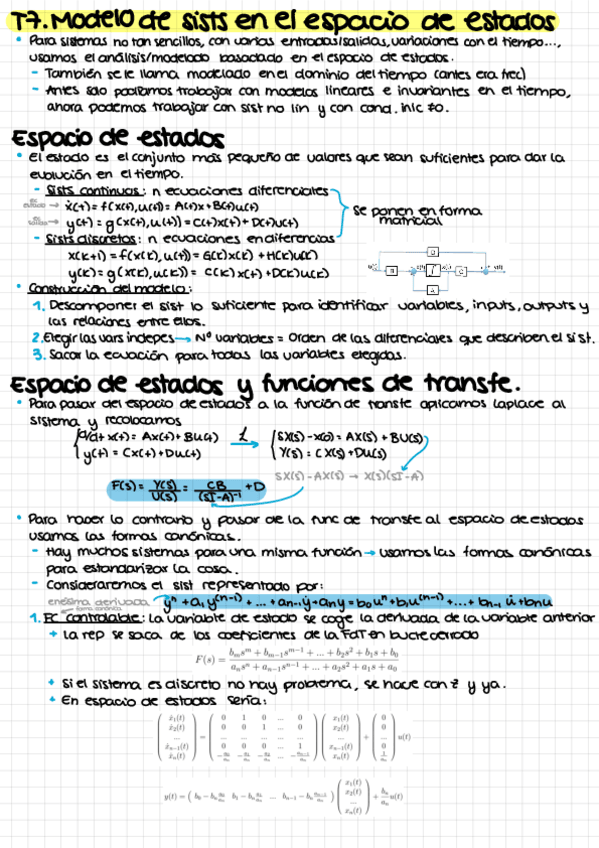 T7. Modelo de sists en el espacio de estados
• Para sistemas no tan sencillos, con varias entradas/salidas, variaciones con el tiempo...,
usamos el análisis/modelado basado en el espacio de estados.
- También se le llama modelado en el dominio del tiempo (antes era frec)
- Antes solo podíamos trabajar con modelos lineares e invariantes en el tiempo,
ahora podemos trabajar con sist no lin y con cond. inic ≠0.
Espacio de estados
• El estado es el conjunto más pequeño de valores que sean suficientes para dar la
evolución en el tiempo.
- Sists continuos: n ecuaciones diferenciales
ec estado → ẋ(t) = f(x(t), u(t)) = A(t)x + B(t)u(t)
ec salida → y(t) = g(x(t), u(t)) = C(t)x(t) + D(t)u(t)
se ponen en forma
matricial
- Sists discretos: n ecuaciones en diferencias
x(k+1) = f(x(k), u(k)) = G(k)x(k) + H(k)u(k)
y(k) = g(x(k), u(k)) = C(k)x(k) + D(k)u(k)
• Construcción del modelo:
1. Descomponer el sist lo suficiente para identificar variables, inputs, outputs y
las relaciones entre ellos.
2. Elegir las vars indeps → Nº variables = Orden de las diferenciales que describen el sist.
3. Sacar la ecuación para todas las variables elegidas.
Espacio de estados y funciones de transfe.
• Para pasar del espacio de estados a la función de transfe aplicamos laplace al
sistema y recolocamos
d/dt x(t) = Ax(t) + Bu(t) ℒ→ SX(s) - x(0) = AX(s) + BU(s)
y(t) = Cx(t) + Du(t) Y(s) = CX(s) + DU(s)
SX(s) - AX(s) → X(s)(SI-A)
F(s) = Y(s)/U(s) = CB/(SI-A)⁻¹ + D
• Para hacer lo contrario y pasar de la func de transfe al espacio de estados
usamos las formas canónicas.
- Hay muchos sistemas para una misma función → usamos las formas canónicas
para estandarizar la cosa.
- Consideraremos el sist representado por:
enésima derivada yⁿ + a₁y⁽ⁿ⁻¹⁾ + ... + aₙ₋₁ẏ + aₙy = b₀uⁿ + b₁u⁽ⁿ⁻¹⁾ + ... + bₙ₋₁u̇ + bₙu
forma canónica
1. FC controlable: la variable de estado se coge la derivada de la variable anterior
+ la rep se saca de los coeficientes de la FdT en bucle cerrado
F(s) = (bₘsᵐ + bₘ₋₁sᵐ⁻¹ + ... + b₂s² + b₁s + b₀)/(aₙsⁿ + aₙ₋₁sⁿ⁻¹ + ... + a₂s² + a₁s + a₀)
+ Si el sistema es discreto no hay problema, se hace con z y ya.
+ En espacio de estados sería:
ẋ₁(t) 0 1 0 ... 0 x₁(t) 0
ẋ₂(t) 0 0 1 ... 0 x₂(t) 0
... = ... ... ... ... ... ... + ... u(t)
ẋₙ₋₁(t) 0 0 0 ... 1 xₙ₋₁(t) 0
ẋₙ(t) -a₀/aₙ -a₁/aₙ -a₂/aₙ ... -aₙ₋₁/aₙ xₙ(t) 1/aₙ
y(t) = ( b₀ - bₙ a₀/aₙ b₁ - bₙ a₁/aₙ ... bₙ₋₁ - bₙ aₙ₋₁/aₙ ) ( x₁(t) x₂(t) ... xₙ(t) ) + bₙ/aₙ u(t)